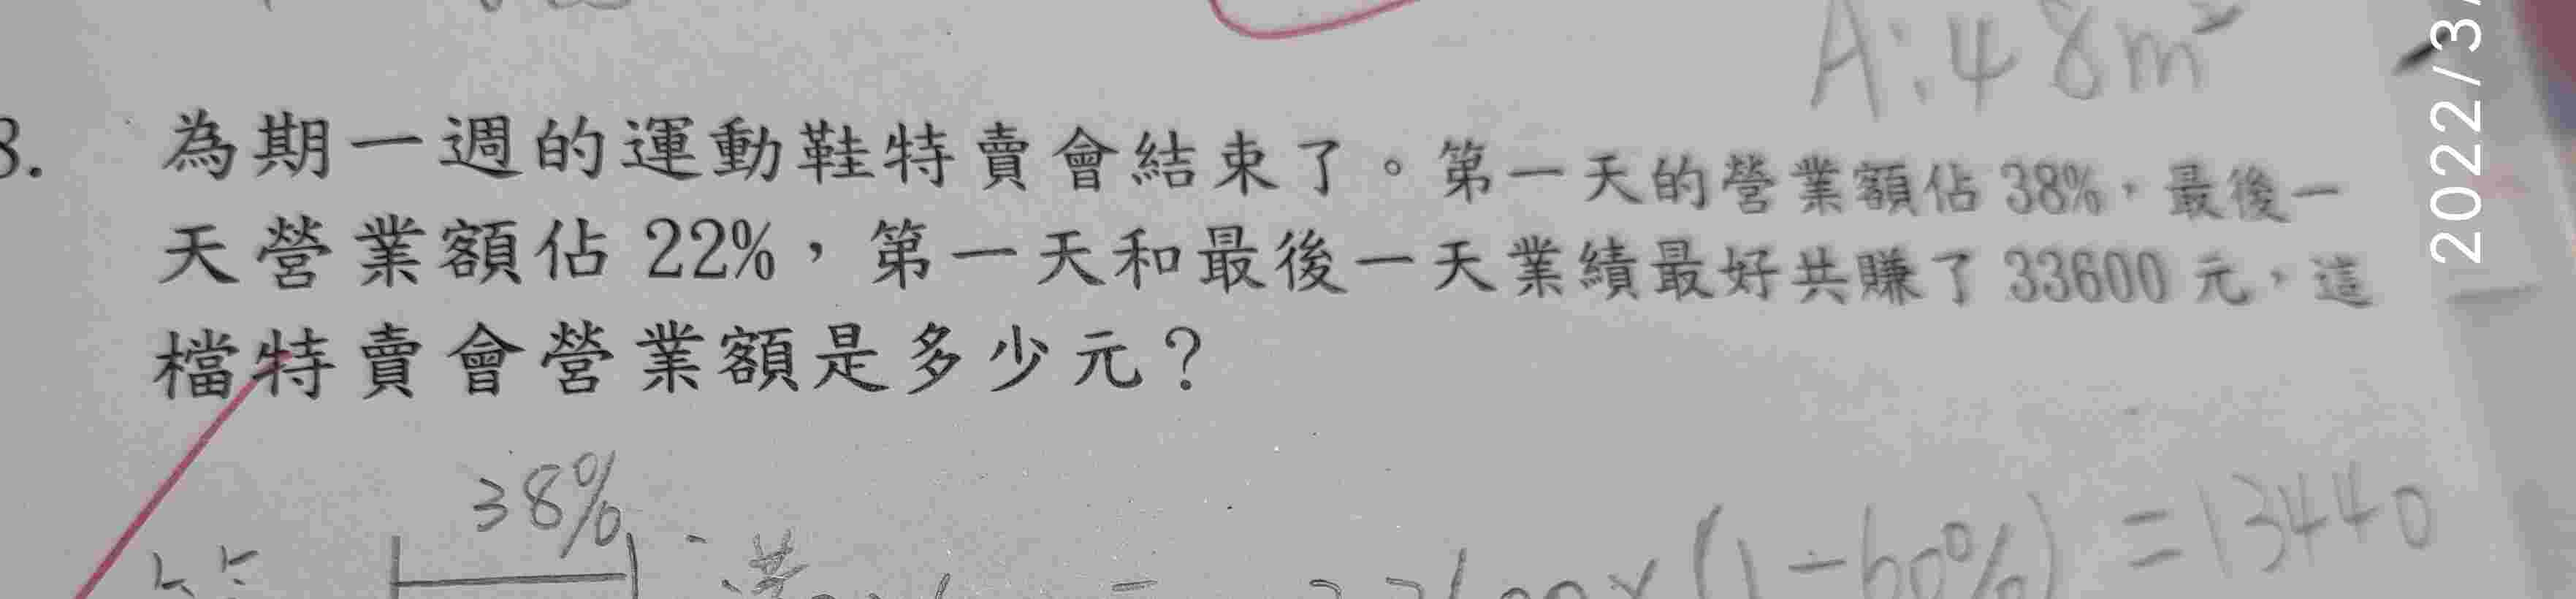 A:48m²
2022/3/
3. 為期一週的運動鞋特賣會結束了。第一天的營業額佔 38%,最後一
天營業額佔 22%,第一天和最後一天業績最好共賺了 33600 元,這
檔特賣會營業額是多少元?
38%
x(1-60%)=13440